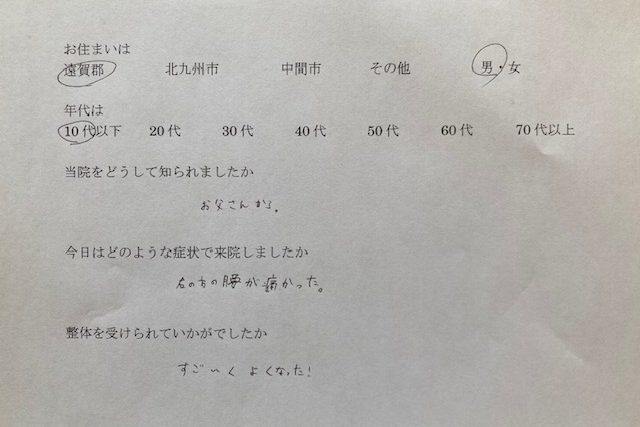 お住まいは
遠賀郡 北九州市 中間市 その他 男・女
年代は
10代以下 20代 30代 40代 50代 60代 70代以上
当院をどうして知られましたか
お父さんから。
今日はどのような症状で来院しましたか
右の方の腰が痛かった。
整体を受けられていかがでしたか
すごいく よくなった!